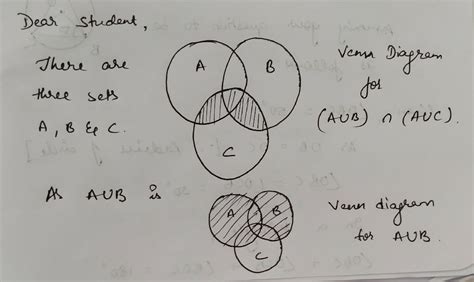 Dear Student,
There are
three sets
A, B & C.
A
B
C
Venn Diagram
for
(AUB) ∩ (AUC).
As AUB is
A
B
C
Venn diagram
for AUB.